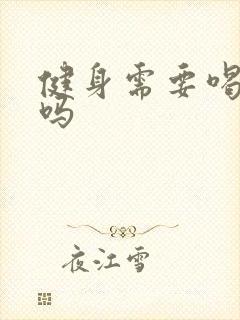 健身需要喝
吗
夜江雪